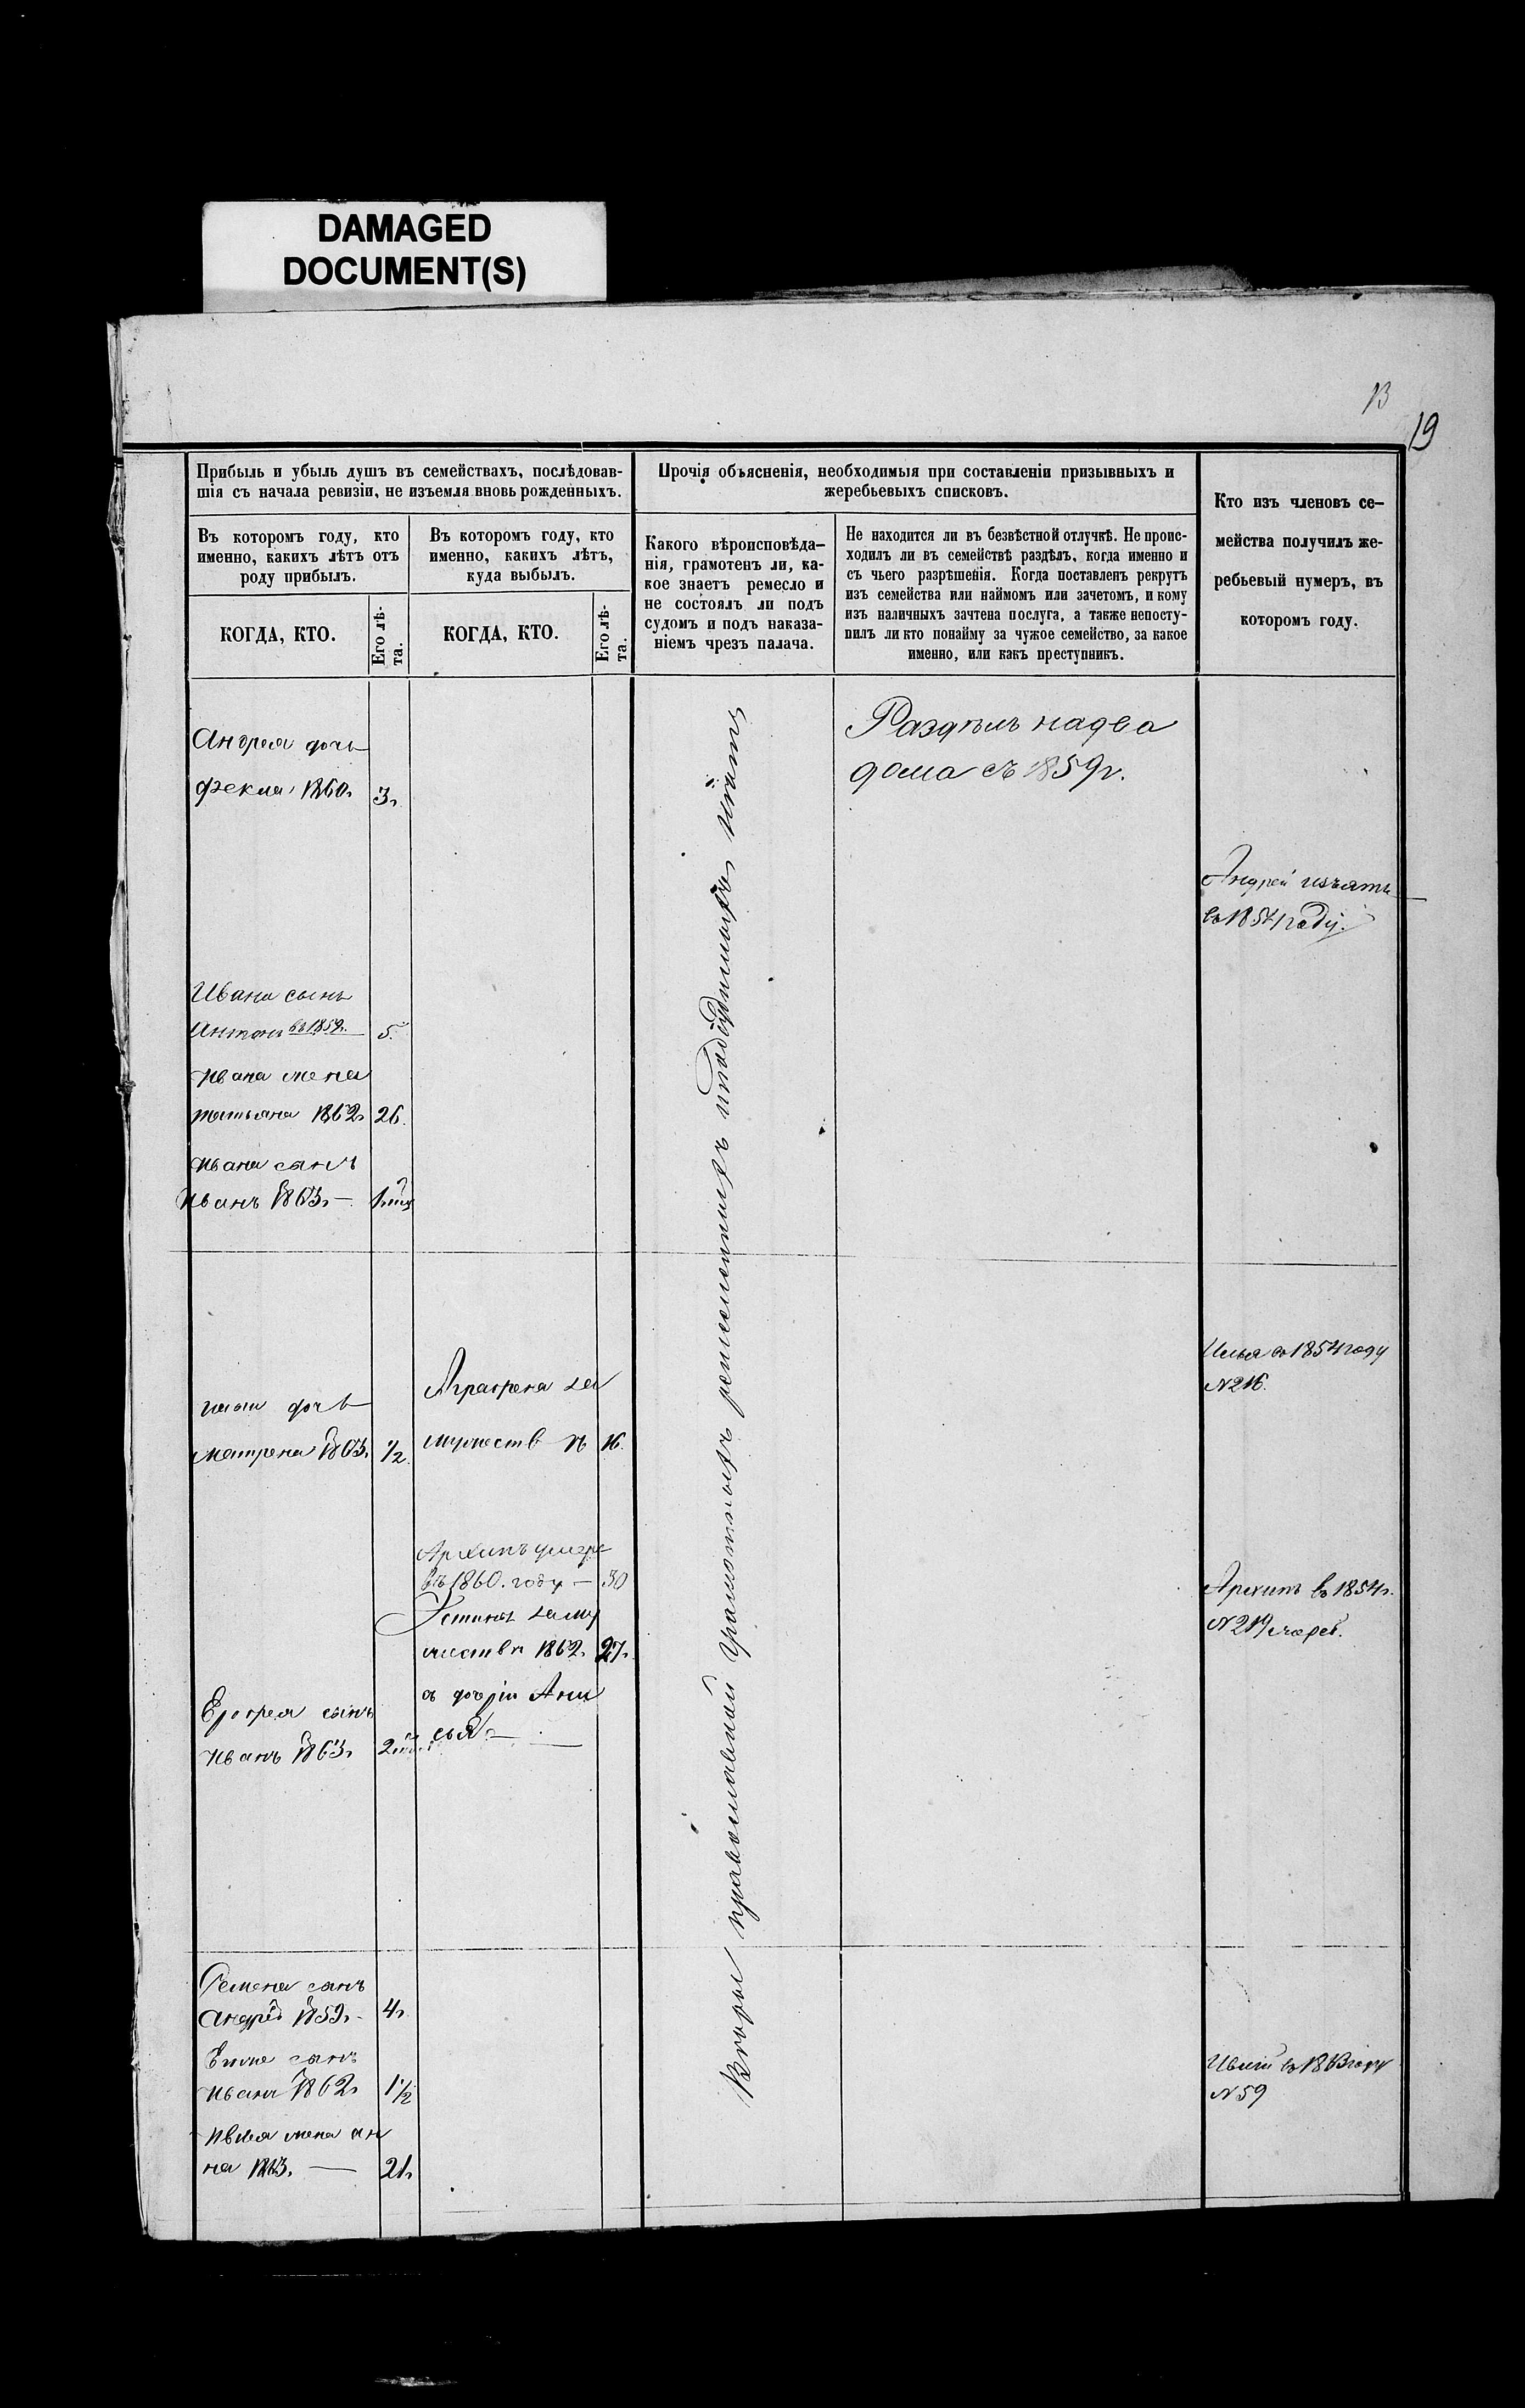 DAMAGED
DOCUMENT(S)
13
19
Прибыль и убыль душъ въ семействахъ, послѣдовав-
шія съ начала ревизіи, не изъемля вновь рожденныхъ.
Прочія объясненія, необходимыя при составленіи призывныхъ и
жеребьевыхъ списковъ.
Кто изъ членовъ се-
мейства получилъ же-
ребьевый нумеръ, въ
которомъ году.
Въ которомъ году, кто
именно, какихъ лѣтъ отъ
роду прибылъ.
Въ которомъ году, кто
именно, какихъ лѣтъ,
куда выбылъ.
Какого вѣроисповѣда-
нія, грамотенъ ли, ка-
кое знаетъ ремесло и
не состоялъ ли подъ
судомъ и подъ наказа-
ніемъ чрезъ палача.
Не находится ли въ безвѣстной отлучкѣ. Не проис-
ходилъ ли въ семействѣ раздѣлъ, когда именно и
съ чьего разрѣшенія. Когда поставленъ рекрутъ
изъ семейства или наймомъ или зачетомъ, и кому
изъ наличныхъ зачтена послуга, а также непосту-
пилъ ли кто понайму за чужое семейство, за какое
именно, или какъ преступникъ.
КОГДА, КТО.
Его лѣ-
та.
КОГДА, КТО.
Его лѣ-
та.
Андрея дочь
Фекла 1860г
3г
Раздѣлъ надва
дома съ 1859г.
Андрей изъятъ
въ 1854 году.
Ивана сынъ
Антонъ въ 1859г.
5.
Ивана жена
Татьяна 1862г
26.
Ивана сынъ
Иванъ 1863г —
Илья въ 1854 году
N 216.
дочь
Матрена 1863г
1/2
Аграфена за
мужеств
16.
Архипъ умеръ
въ 1860. году —
30
Устинья заму
жеств 1862г.
27г.
съ дочерью Ани
сья —
Архипъ въ 1854г.
N 219 жереб.
Ерофея сынъ
Иванъ 1863г
православной грамотныхъ ремесленныхъ
Семена сынъ
Андрей 1859г. -
4г.
сынъ
Иванъ 1862г
1 1/2
жена Ан
на 1863. —
21г
въ 1863 году
N 59